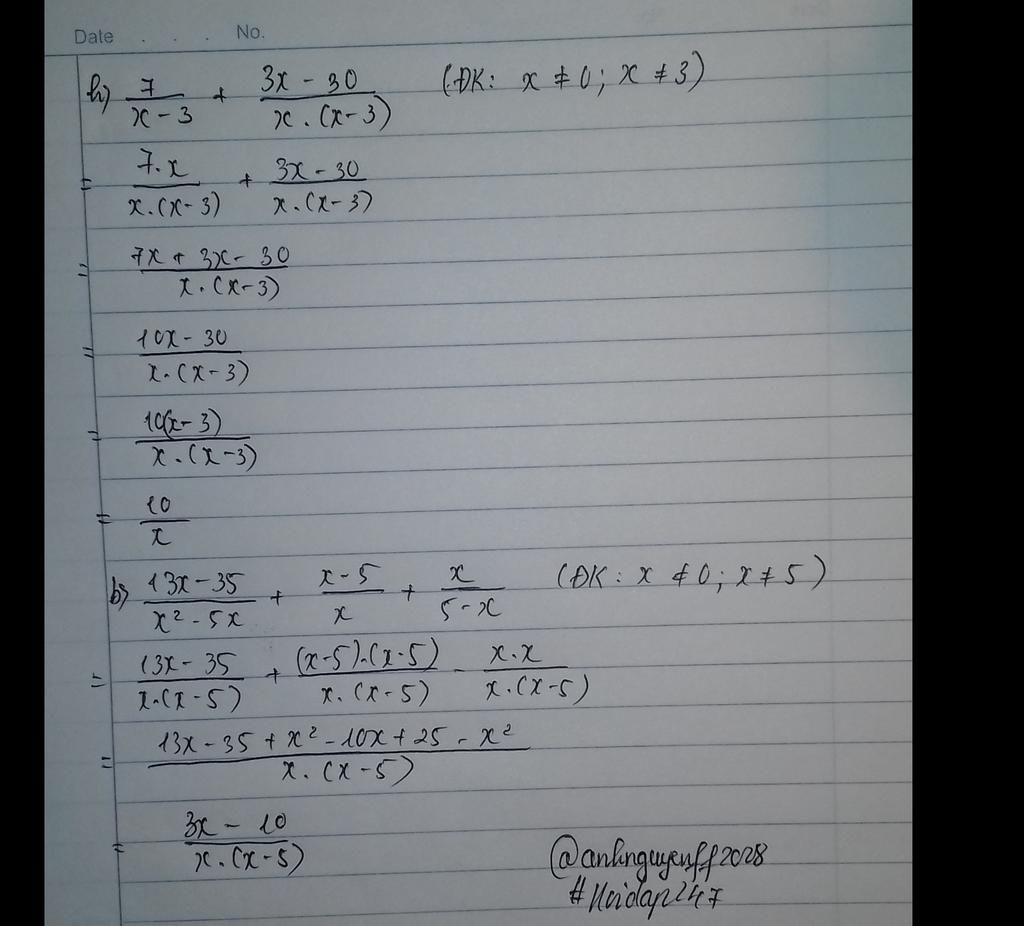 Date . . . No.
h) 7/(x-3) + (3x-30)/(x.(x-3)) (ĐK: x ≠ 0; x ≠ 3)
= (7.x)/(x.(x-3)) + (3x-30)/(x.(x-3))
= (7x+3x-30)/(x.(x-3))
= (10x-30)/(x.(x-3))
= (10(x-3))/(x.(x-3))
= 10/x
b) (13x-35)/(x²-5x) + (x-5)/x + x/(5-x) (ĐK: x ≠ 0; x ≠ 5)
= (13x-35)/(x.(x-5)) + ((x-5).(x-5))/(x.(x-5)) - (x.x)/(x.(x-5))
= (13x-35+x²-10x+25-x²)/(x.(x-5))
= (3x-10)/(x.(x-5))
@anhnguyenff2028
#Hoidap247